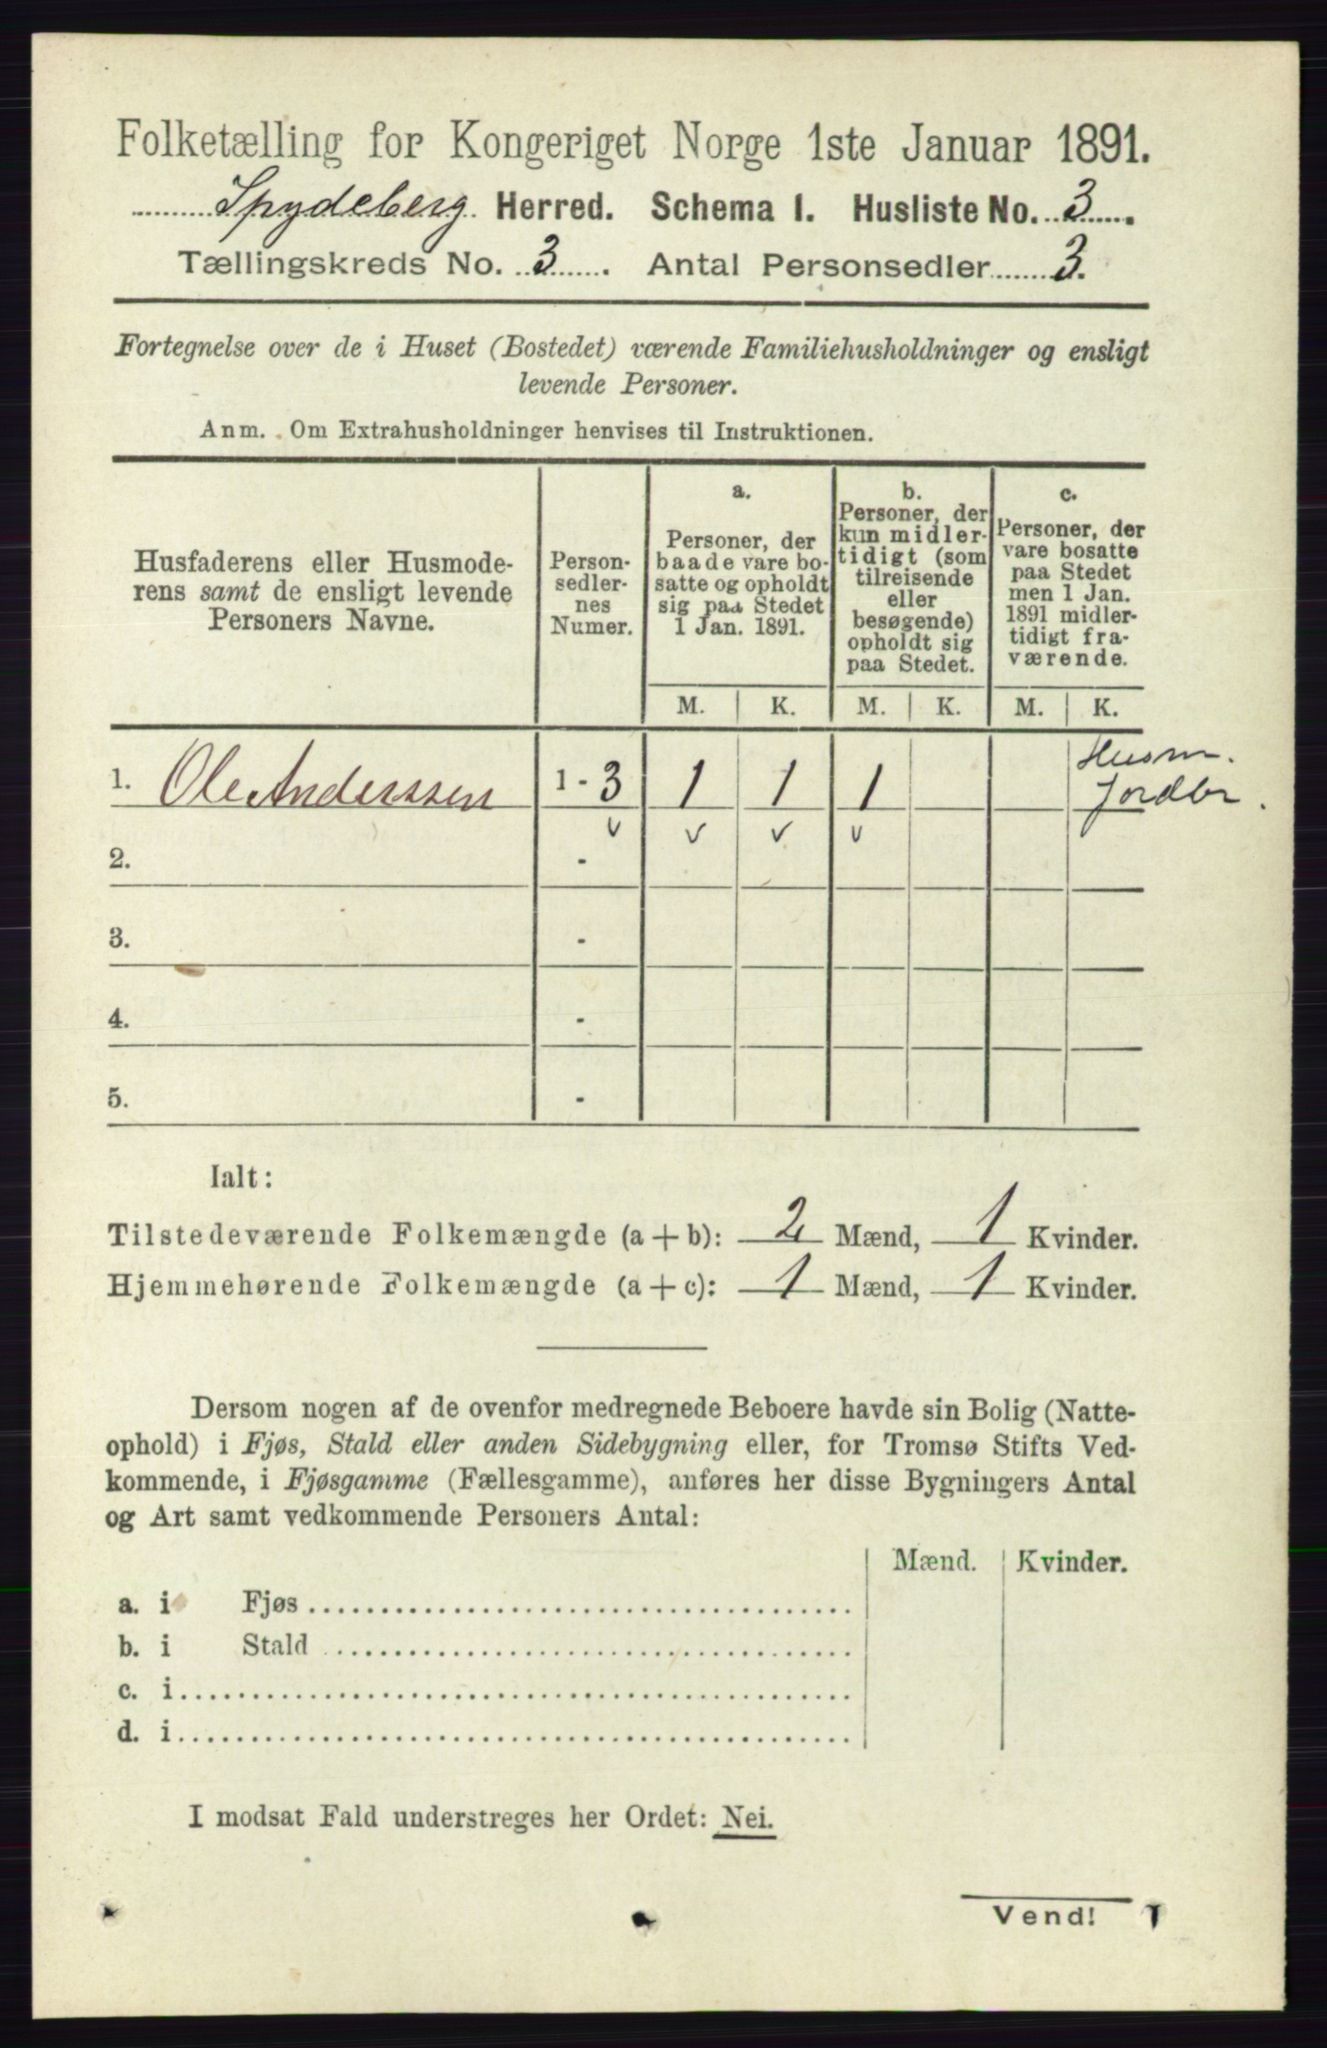 Folketælling for Kongeriget Norge 1ste Januar 1891.
Spydeberg Herred. Schema I. Husliste No. 3.
Tællingskreds No. 3. Antal Personsedler 3.
Fortegnelse over de i Huset (Bostedet) værende Familiehusholdninger og ensligt
levende Personer.
Anm. Om Extrahusholdninger henvises til Instruktionen.
Husfaderens eller Husmode-
rens samt de ensligt levende
Personers Navne.
Person-
sedler-
nes
Numer.
a.
Personer, der
baade vare bo-
satte og opholdt
sig paa Stedet
1 Jan. 1891.
b.
Personer, der
kun midler-
tidigt (som
tilreisende
eller
besøgende)
opholdt sig
paa Stedet.
c.
Personer, der
vare bosatte
paa Stedet
men 1 Jan.
1891 midler-
tidigt fra-
værende.
M. K. M. K. M. K.
1. Ole Anderssen 1 - 3 1 1 1 Husm.
Jordbr.
v v v v
2. -
3. -
4. -
5. -
Ialt:
Tilstedeværende Folkemængde (a + b): 2 Mænd, 1 Kvinder.
Hjemmehørende Folkemængde (a + c): 1 Mænd, 1 Kvinder.
Dersom nogen af de ovenfor medregnede Beboere havde sin Bolig (Natte-
ophold) i Fjøs, Stald eller anden Sidebygning eller, for Tromsø Stifts Ved-
kommende, i Fjøsgamme (Fællesgamme), anføres her disse Bygningers Antal
og Art samt vedkommende Personers Antal:
Mænd. Kvinder.
a. i Fjøs
b. i Stald
c. i
d. i
I modsat Fald understreges her Ordet: Nei.
Vend!